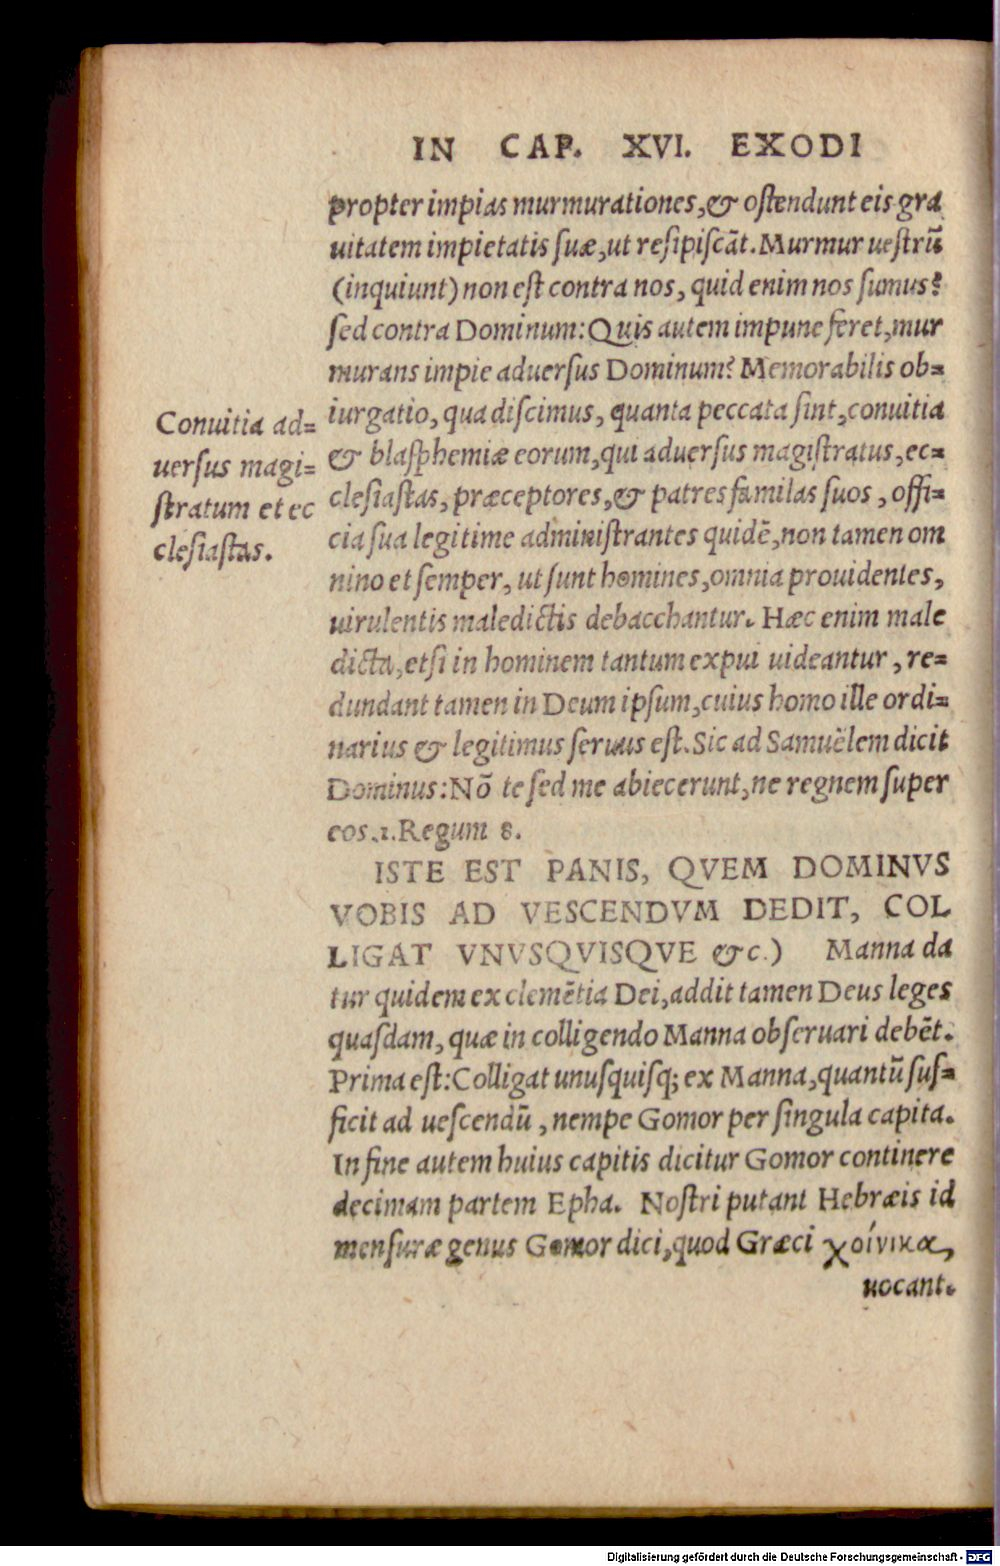 IN CAP. XVI. EXODI
propter impias murmurationes, & ostendunt eis gra
uitatem impietatis suæ, ut resipiscāt. Murmur uestrū
(inquiunt) non est contra nos, quid enim nos sumus?
sed contra Dominum: Quis autem impune feret, mur
murans impie aduersus Dominum? Memorabilis ob=
iurgatio, qua discimus, quanta peccata sint, conuitia
& blasphemiæ eorum, qui aduersus magistratus, ec=
clesiastas, præceptores, & patres familas suos, offi=
cia sua legitime administrantes quidē, non tamen om
nino et semper, ut sunt homines, omnia prouidentes,
uirulentis maledictis debacchantur. Hæc enim male
dicta, etsi in hominem tantum expui uideantur, re=
dundant tamen in Deum ipsum, cuius homo ille ordi=
narius & legitimus seruus est. Sic ad Samuëlem dicit
Dominus: Nō te sed me abiecerunt, ne regnem super
eos. 1. Regum 8.
Conuitia ad=
uersus magi=
stratum et ec
clesiastas.
ISTE EST PANIS, QVEM DOMINVS
VOBIS AD VESCENDVM DEDIT, COL
LIGAT VNVSQVISQVE &c.) Manna da
tur quidem ex clemētia Dei, addit tamen Deus leges
quasdam, quæ in colligendo Manna obseruari debēt.
Prima est: Colligat unusquisq; ex Manna, quantū suf=
ficit ad uescendū, nempe Gomor per singula capita.
In fine autem huius capitis dicitur Gomor continere
decimam partem Epha. Nostri putant Hebræis id
mensuræ genus Gomor dici, quod Græci χοίνικα,
uocant.
Digitalisierung gefördert durch die Deutsche Forschungsgemeinschaft - DFG